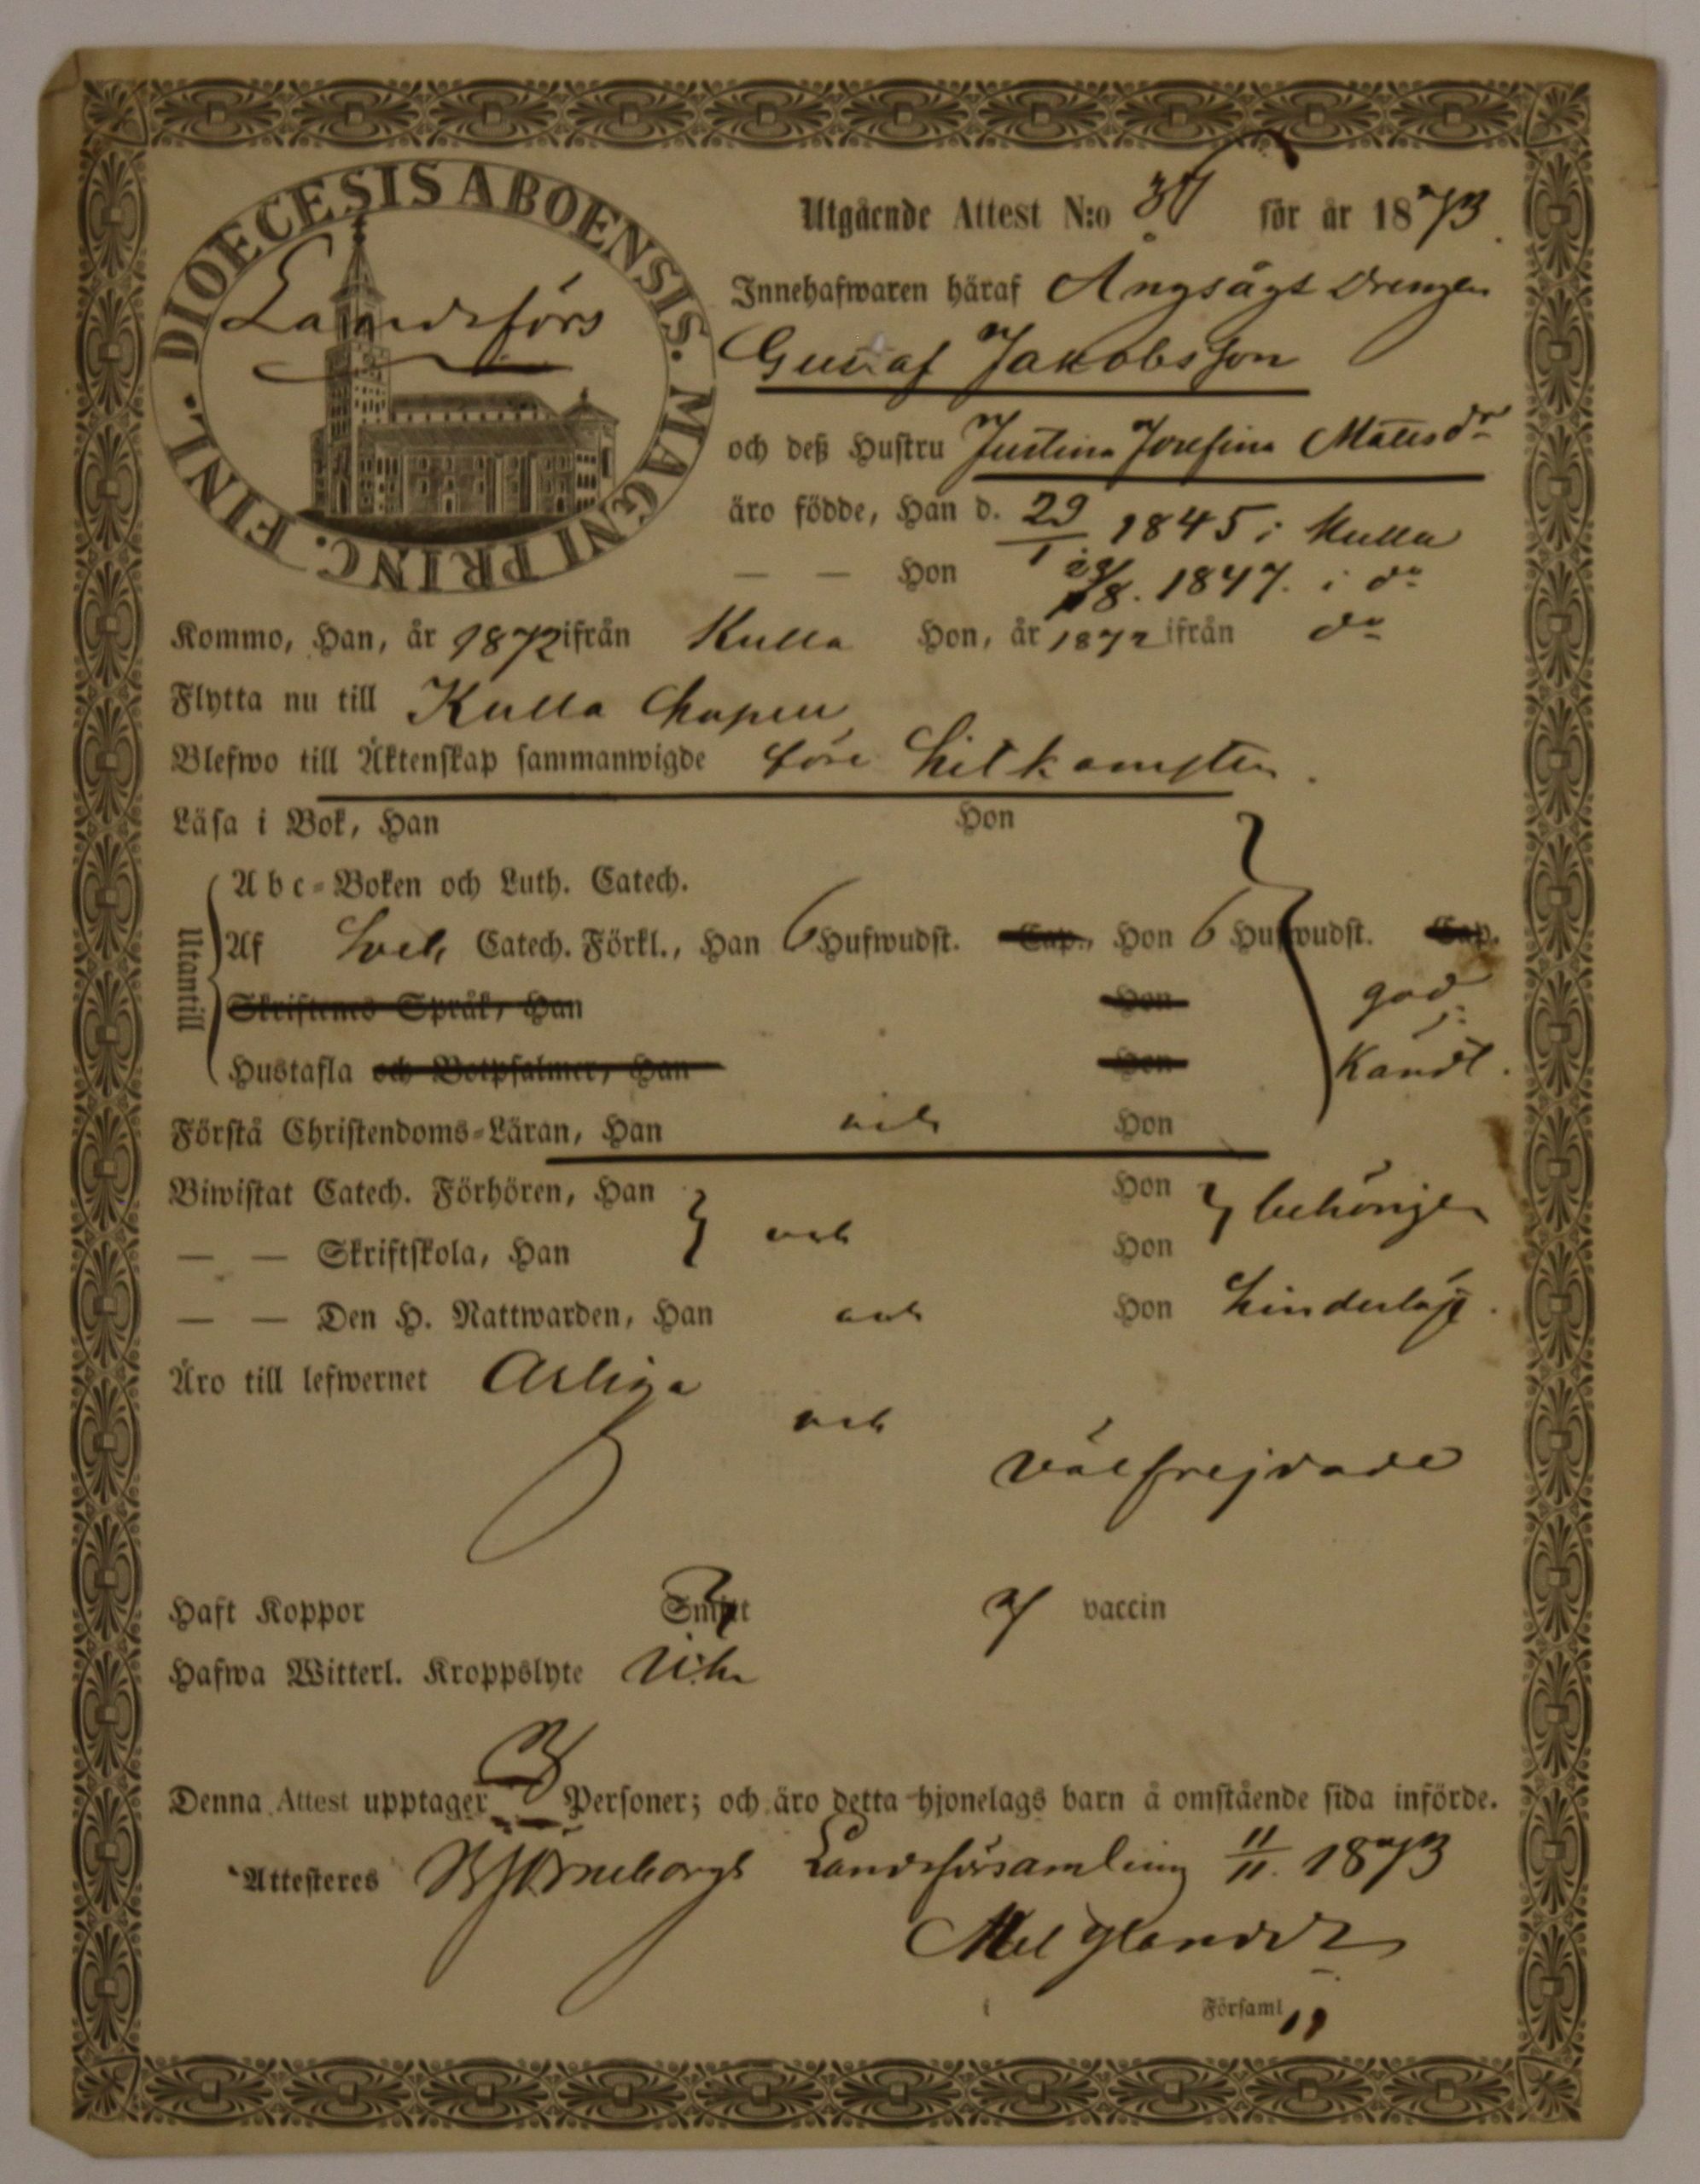 DIOECESIS ABOENSIS. MAGNI PRINC. FINL.
Landsförs
Utgående Attest N:o för år 1873.
Innehafwaren häraf Ångsågs Drengen
Gustaf Jakobsson
och deß Hustru Justina Josefina Matsdr
äro födde, Han d. 29/1 1845 i Kulla
— — Hon 29/8. 1847. i do
Kommo, Han, år 1872 ifrån Kulla Hon, år 1872 ifrån do
Flytta nu till Kulla Capell
Blefwo till Äktenskap sammanwigde före hitkomsten.
Läsa i Bok, Han Hon
Utantill
Abc-Boken och Luth. Catech.
Af Sveb. Catech. Förkl., Han 6 Hufwudst. Cap., Hon 6 Hufwudst. Cap.
Skriftenes Språk, Han Hon god
Hustafla och Botpsalmer, Han Hon Kändt.
Förstå Christendoms-Läran, Han och Hon
Biwistat Catech. Förhören, Han Hon behörigen
— — Skriftskola, Han och Hon
— — Den H. Nattwarden, Han och Hon hinderlöse.
Äro till lefwernet Ärliga
och
välfrejdade
Haft Koppor Smitt vaccin
Hafwa Witterl. Kroppslyte
Denna Attest upptager 3 Personer; och äro detta hjonelags barn å omstående sida införde.
Attesteres Björneborgs Landsförsamling 11/11. 1873
i Församl